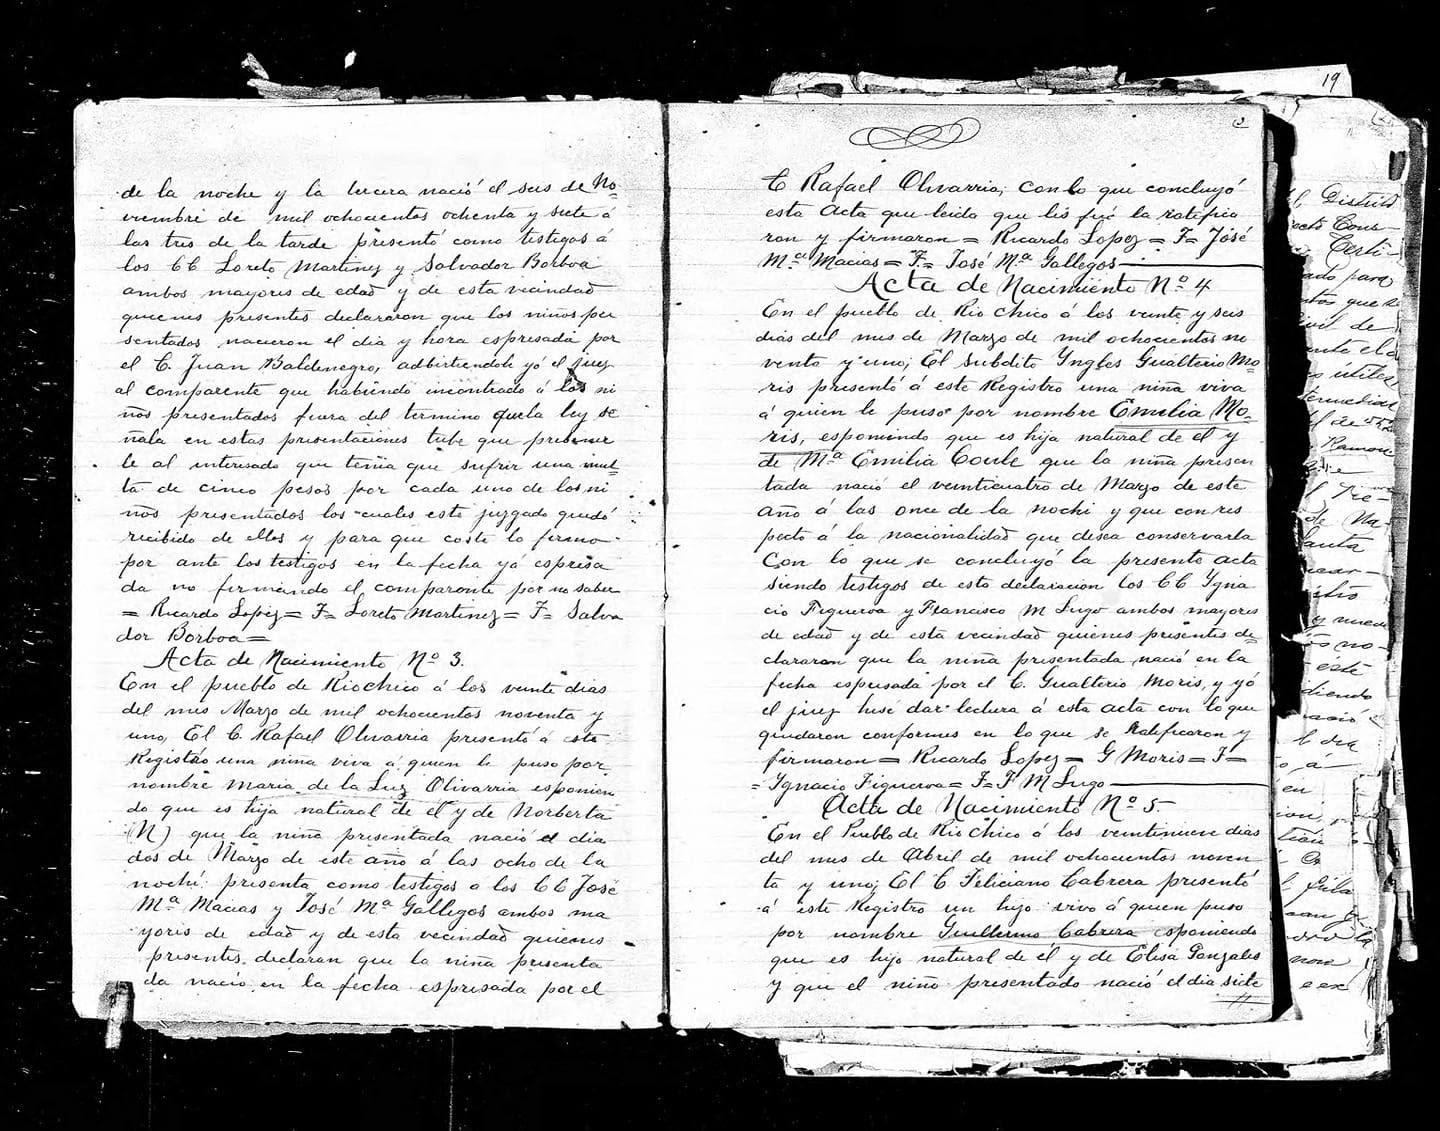 de la noche y la tercera nació el seis de No=
viembre de mil ochocientos ochenta y siete á
las tres de la tarde presentó como testigos á
los CC Loreto Martinez y Salvador Borboa
ambos mayores de edad y de esta vecindad
quienes presentes declararon que los niños pre
sentados nacieron el dia y hora espresada por
el C. Juan Baldenegro, adbirtiendole yó el juez
al comparente que habiendo incontrado á los ni
ños presentados fuera del termino que la ley se
ñala en estas presentaciones tube que
le al interesado que tenia que sufrir una mul=
ta de cinco pesos por cada uno de los ni
ños presentados los cuales este juzgado quedó
recibido de ellos y para que coste lo firmo
por ante los testigos en la fecha yá espresa
da no firmando el comparente por no saber
= Ricardo Lopez = F= Loreto Martinez = F= Salva
dor Borboa =
Acta de Nacimiento Nº 3.
En el pueblo de Rio chico á los veinte dias
del mes Marzo de mil ochocientos noventa y
uno, El C. Rafael Olivarria presentó á este
Registro una niña viva á quien le puso por
nombre Maria de la Luz Olivarria esponien
do que es hija natural de el y de Norberta
(N) que la niña presentada nació el dia
dos de Marzo de este año á las ocho de la
noche presenta como testigos a los CC José
Mª Macias y José Mª Gallegos ambos ma
yores de edad y de esta vecindad quienes
presentes declaran que la niña presenta
da nació en la fecha espresada por el
19
2
C Rafael Olivarria, con lo que concluyó
esta Acta que leida que les fué la ratifica
ron y firmaron = Ricardo Lopez = F= José
Mª Macias = F= José Mª Gallegos
Acta de Nacimiento Nº 4
En el pueblo de Rio Chico á los veinte y seis
dias del mes de Marzo de mil ochocientos no
venta y uno; El subdito Yngles Gualterio Mo
ris presentó á este Registro una niña viva
á quien le puso por nombre Emilia Mo=
ris, esponiendo que es hija natural de el y
de Mª Emilia que la niña presen
tada nació el veinticuatro de Marzo de este
año á las once de la nochi y que con res
pecto á la nacionalidad que desea conservarla
Con lo que se concluyó la presente acta
siendo testigos de esta declaracion los CC Ygna
cio Figueroa y Francisco M Lugo ambos mayores
de edad y de esta vecindad quienes presentes de=
clararon que la niña presentada nació en la
fecha espresada por el C. Gualterio Moris, y yó
el juez hisé dar lectura á esta acta con lo que
quedaron conformes en lo que se Ratificaron y
firmaron = Ricardo Lopez = G Moris = F=
= Ygnacio Figueroa = F= F M Lugo
Acta de Nacimiento Nº 5
En el Pueblo de Rio Chico á los veintinueve dias
del mes de Abril de mil ochocientos noven
ta y uno; El C Feliciano Cabrera presentó
á este Registro un hijo vivo á quien puso
por nombre Guillermo Cabrera esponiendo
que es hijo natural de él y de Elisa Gonzales
y que el niño presentado nació el dia siete